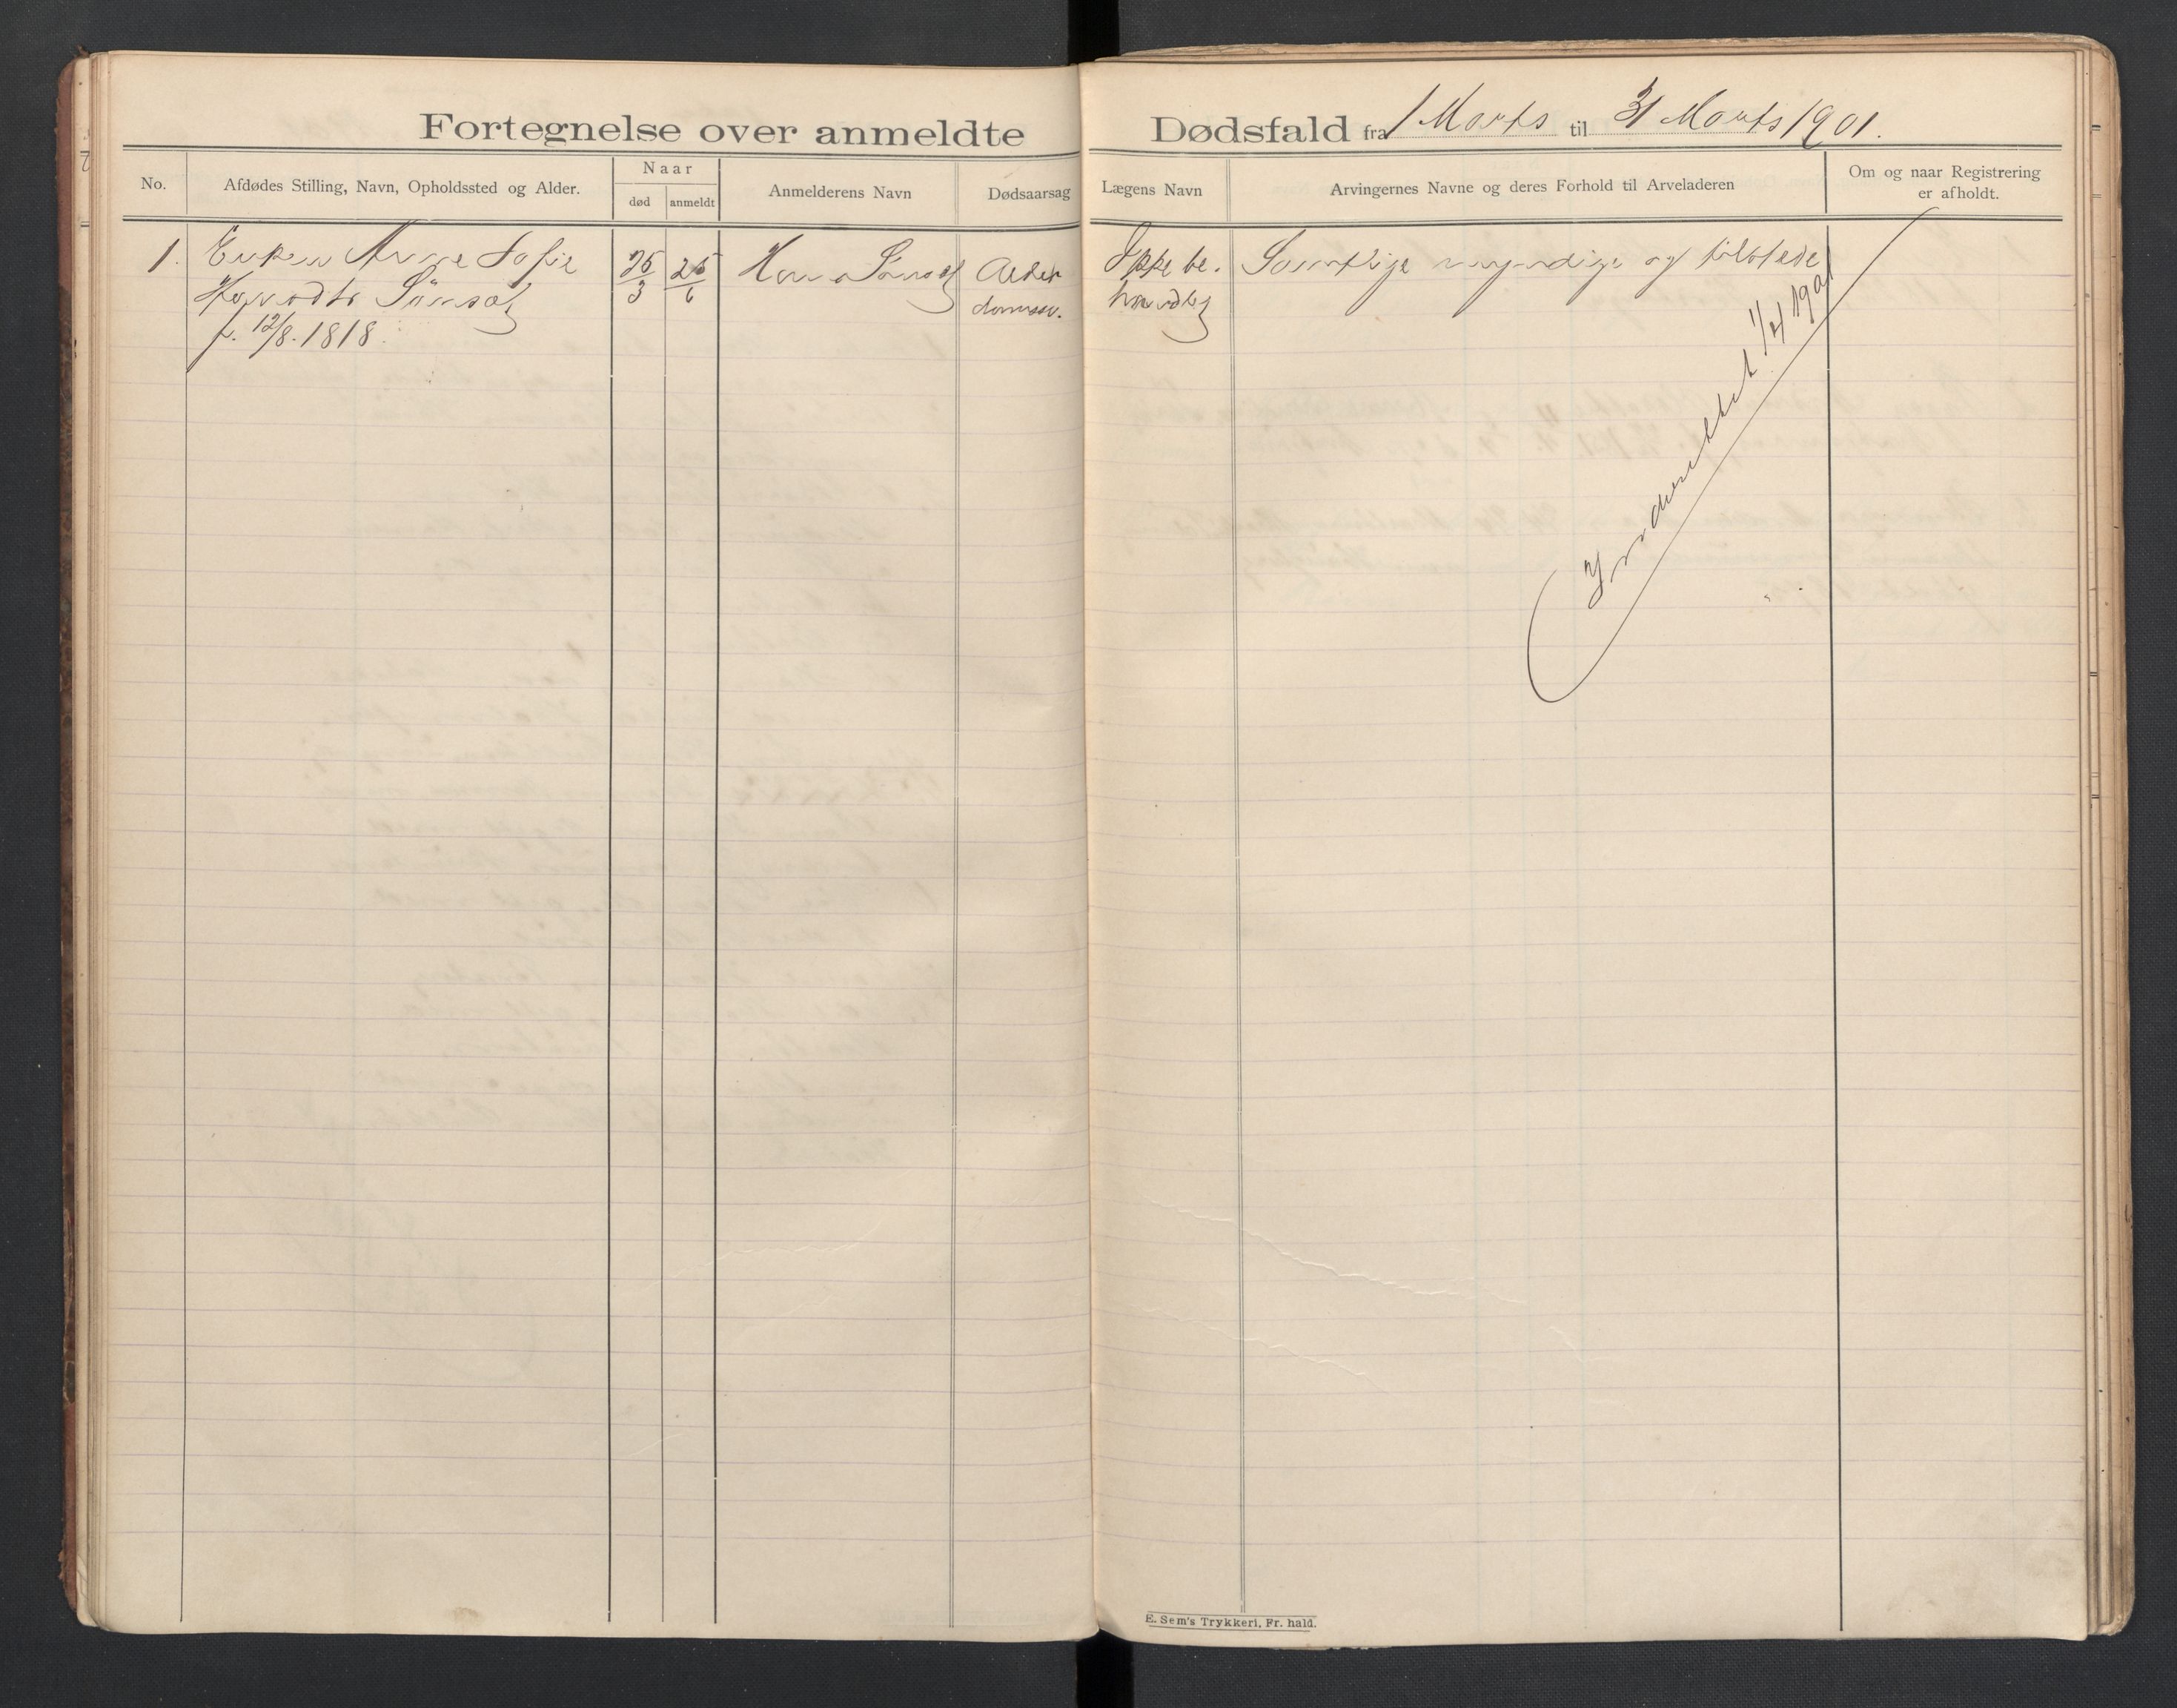 Fortegnelse over anmeldte Dødsfald fra 1 Marts til 31 Marts 1901.
No.
Afdødes Stilling, Navn, Opholdssted og Alder.
Naar
død
anmeldt
Anmelderens Navn
Dødsaarsag
Lægens Navn
Arvingernes Navne og deres Forhold til Arveladeren
Om og naar Registrering
er afholdt.
1.
Enken Anne Sofie
f. 12/8. 1818.
25/3
Alder
domssv.
Ikke be-
handlet
Samtlige myndige og tilstede
Inderettet 1/4 1901
E. Sem's Trykkeri, Fr. hald.